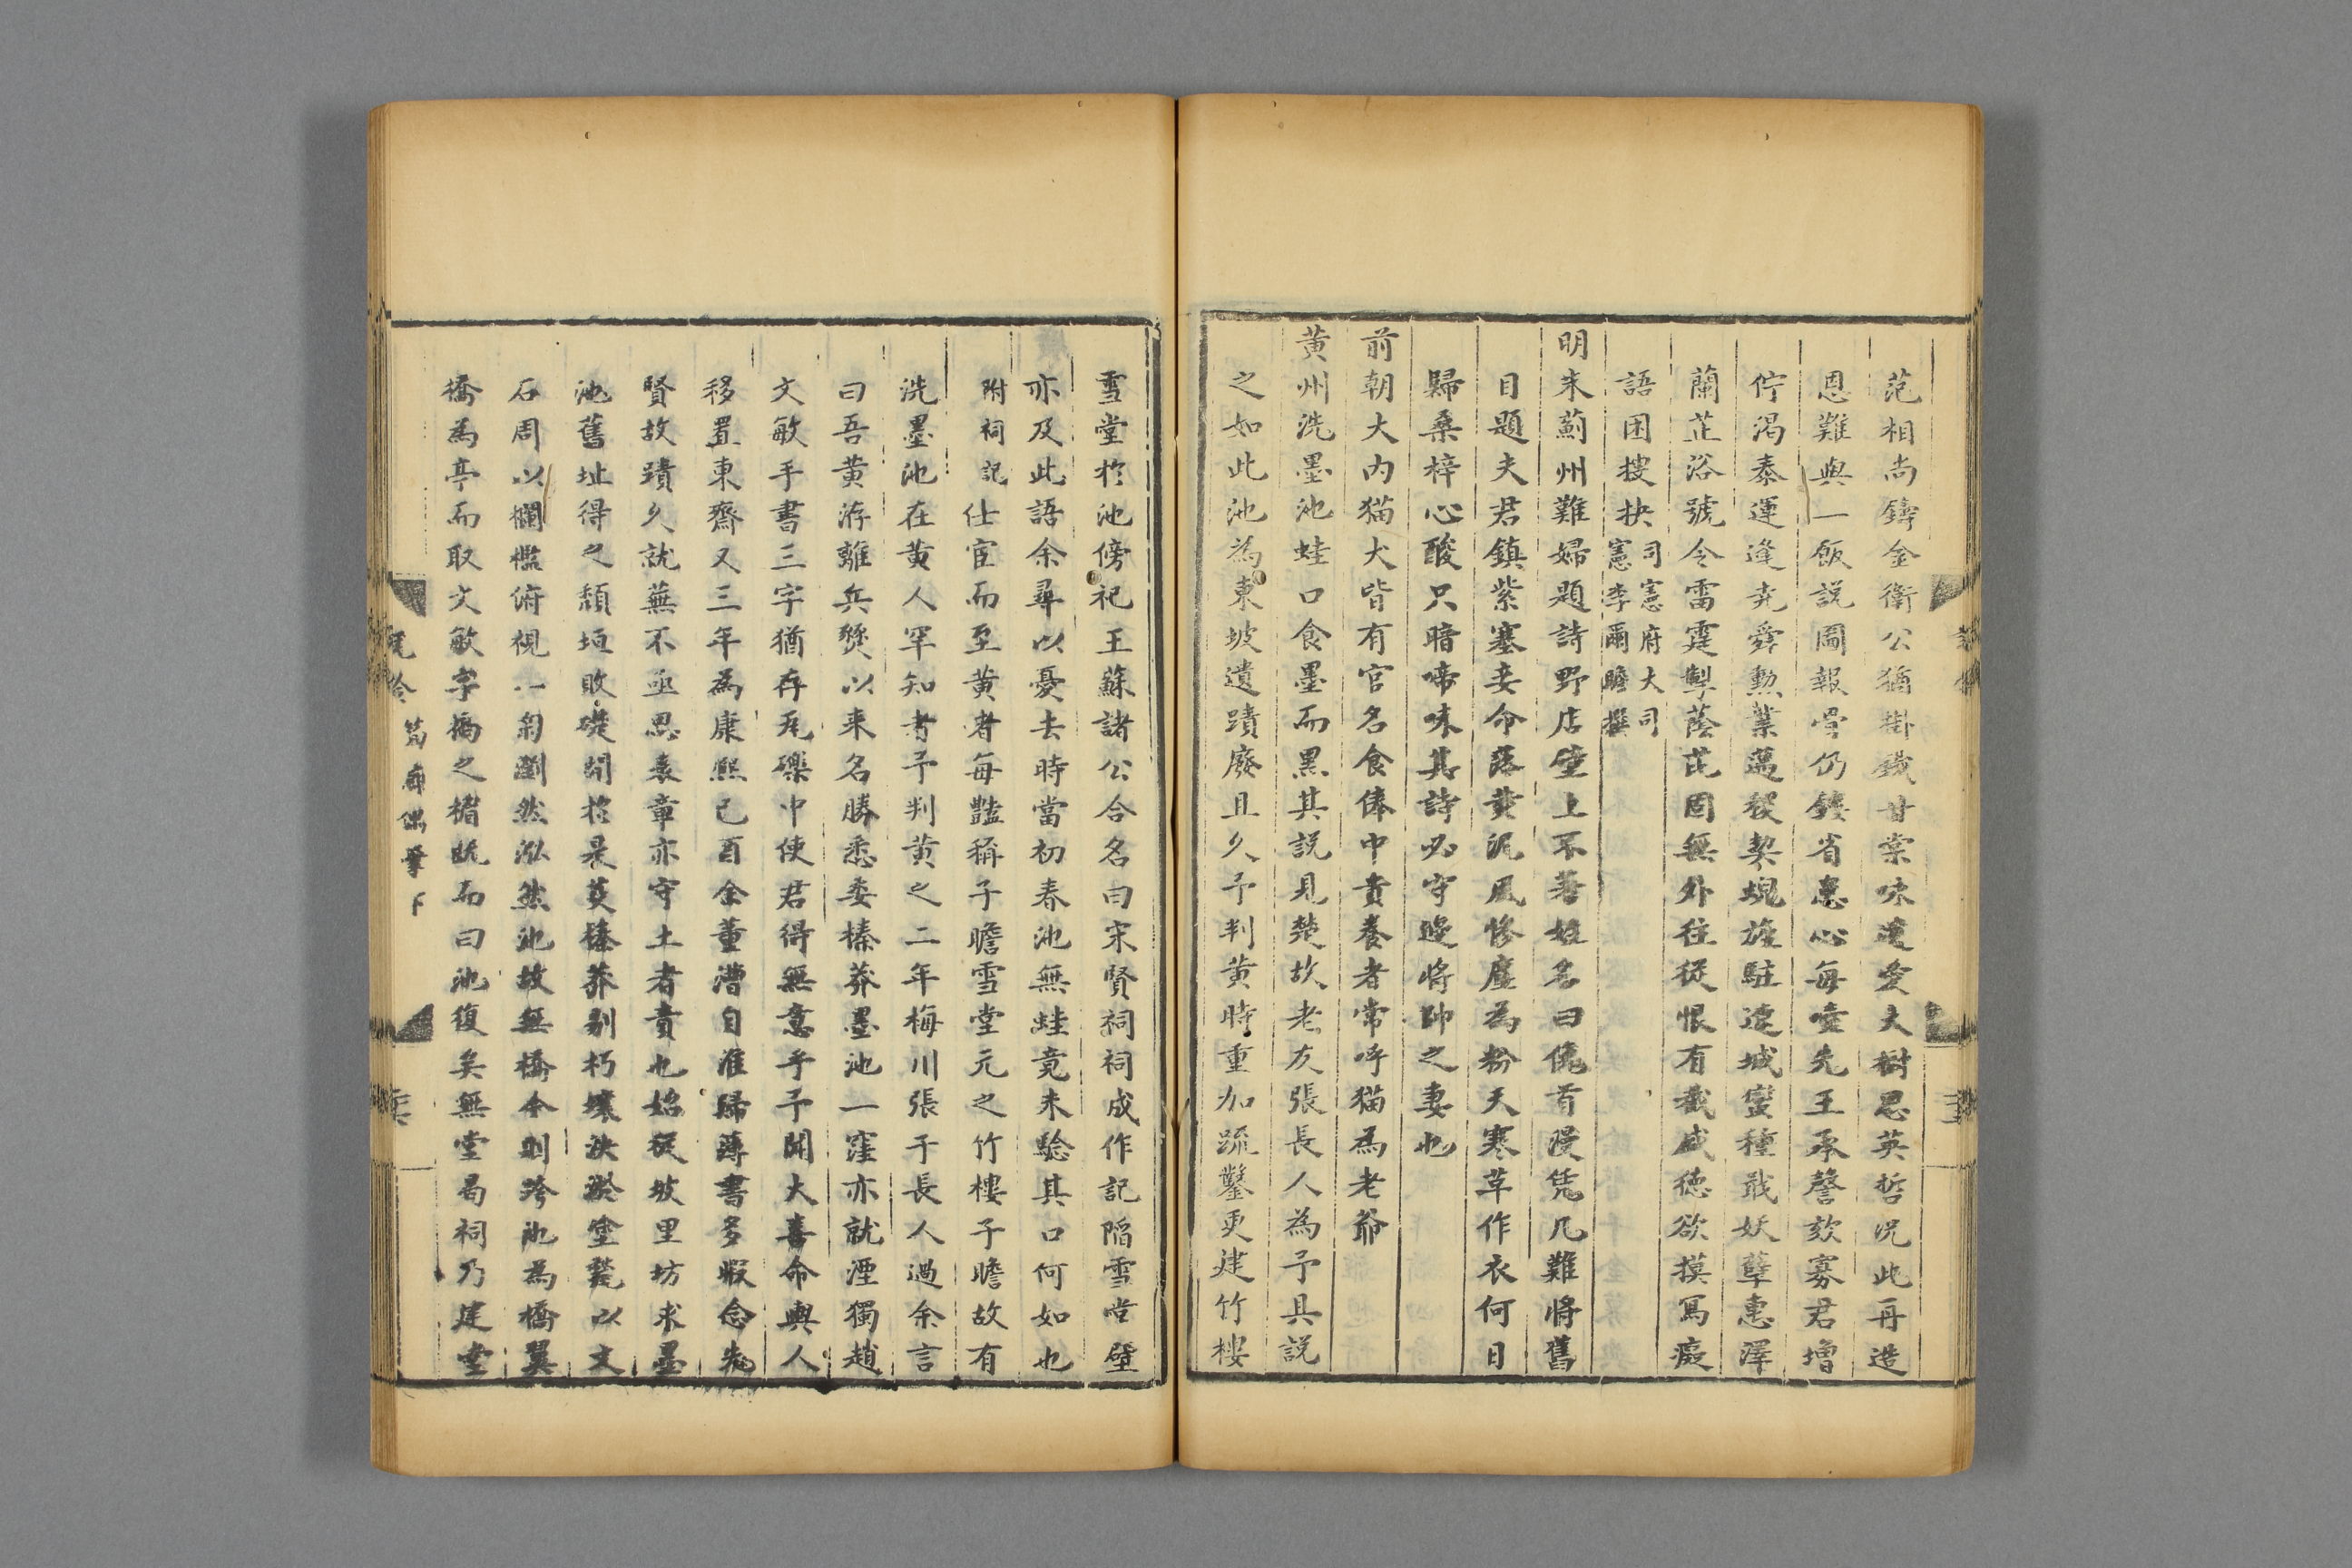 范相尚鑄金衛公猶掛鐵甘棠味遺愛大樹思英哲况此再造
恩難與一飯説圖報骨仍鏤省愆心每噎先王承謦欬寡君增
佇渴泰運逢尭舜勲業邁稷契塊旋駐遼城蠻種戢妖孽惠澤
蘭芷浴號令雷霆掣蔭茈固無外往從恨有截盛徳欲摸冩癡
語困搜抉司憲府大司憲李爾瞻撰
明末薊州難婦題詩野店壁上不著姓名曰傀首漫凭几難將舊
目題夫君鎮紫塞妾命落黄泥風慘塵為粉天寒草作衣何日
歸桑梓心酸只暗啼味其詩必守邊將帥之妻也
前朝大内猫犬皆有官名食俸中貴養者常呼猫為老爺
黄州洗墨池蛙口食墨而黒其説見楚故老友張長人為予具説
之如此池為東坡遺蹟廢且久予判黄時重加疏鑿更建竹樓
雪堂於池傍祀王蘇諸公合名曰宋賢祠祠成作記䧟雪堂壁
亦及此語余尋以憂去時當初春池無蛙竟未驗其口何如也
附祠記仕宦而至黄者每豔稱子瞻雪堂元之竹樓子瞻故有
洗墨池在黄人罕知者予判黄之二年梅川張于長人過余言
曰吾黄游離兵燹以来名勝悉委榛莽墨池一窪亦就湮獨趙
文敏手書三字猶存瓦礫中使君得無意乎予聞大喜命輿人
移置東齋又三年為康熙己酉余董漕自淮歸薄書多暇念先
賢故蹟久就蕪不亟思表章亦守土者責也始従坡里坊求墨
池舊址得之頽垣敗礎閒於是芟榛莽剔朽壤決淤塗甃以文
石周以欄檻俯視一匊瀏然泓然池故無橋今則跨池為橋翼
橋為亭而取文敏字橋之楣既而曰池復矣無堂局祠乃建堂
筠廊偶筆下